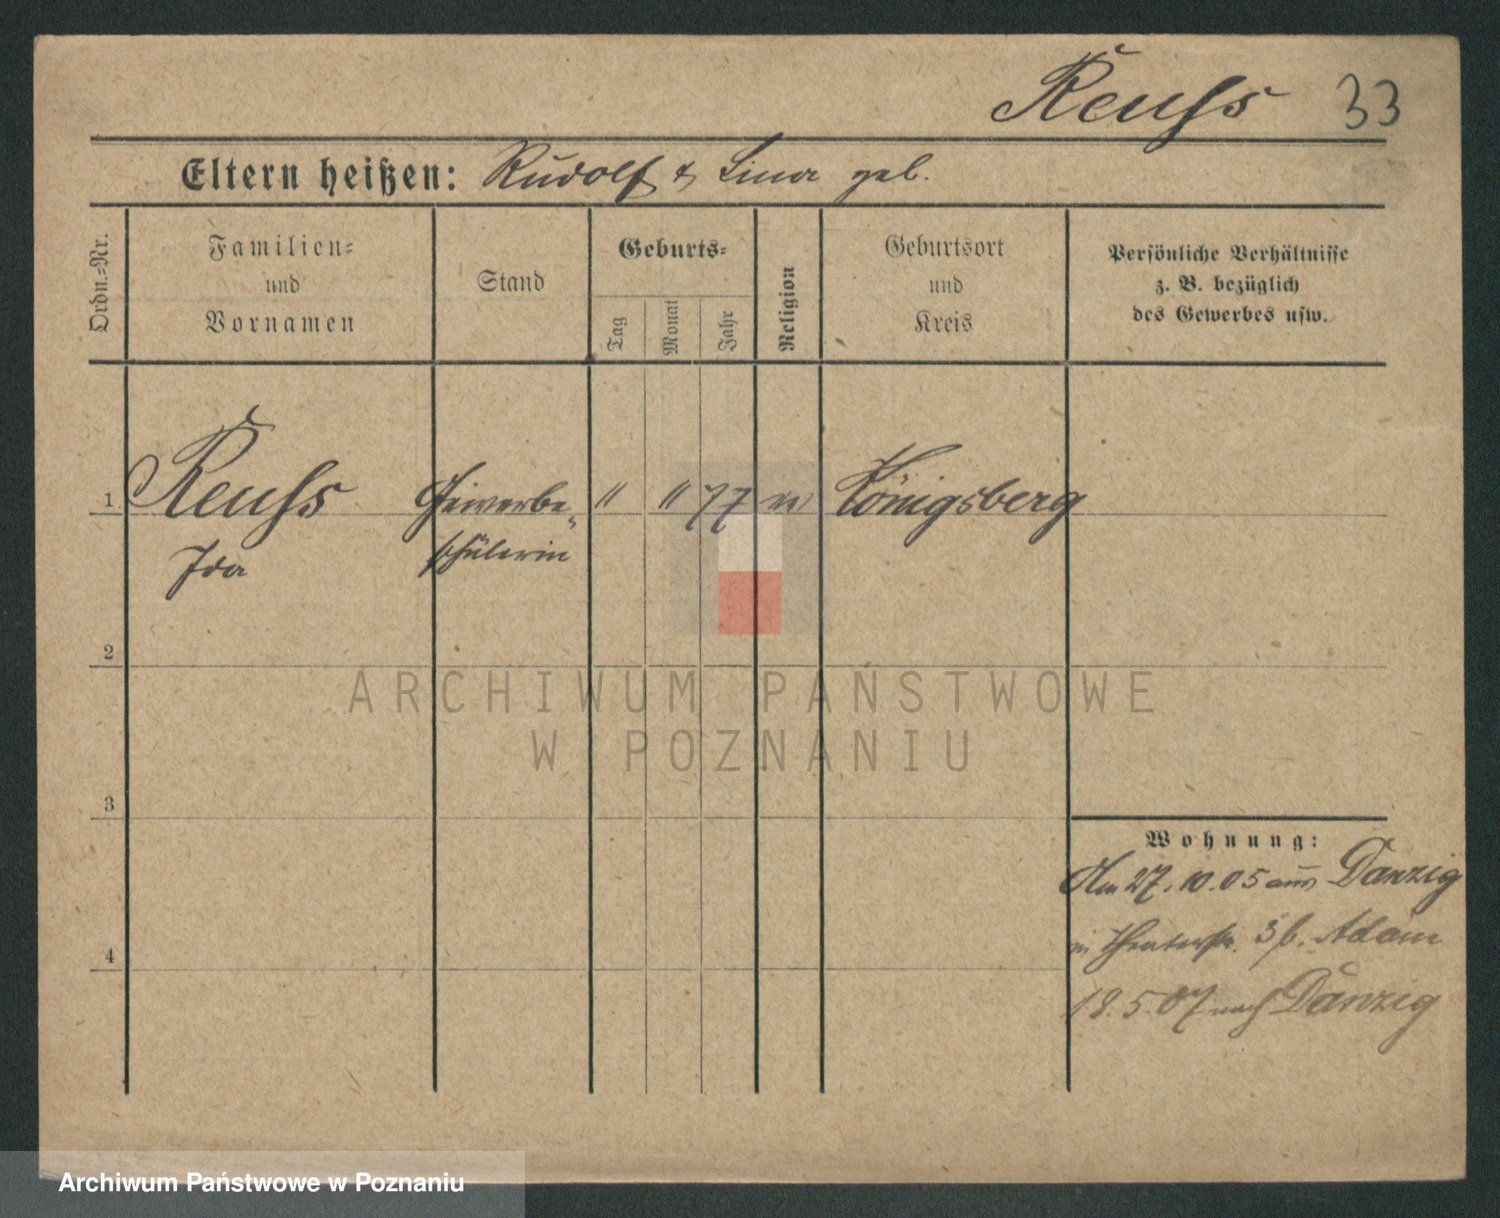 Reuſs 33
Eltern heißen: Rudolf & Lina geb.
Ordn.-Nr.
Familien-
und
Vornamen
Stand
Geburts-
Tag
Monat
Jahr
Religion
Geburtsort
und
Kreis
Persönliche Verhältnisse
z. B. bezüglich
des Gewerbes usw.
1 Reuſs Gewerbe- " " 77 Königsberg
Ida schülerin
2
3
4
Wohnung:
Am 27.10.05 aus Danzig
in Theaterstr. 3 b. Adam
18.5.07 nach Danzig
ARCHIWUM PAŃSTWOWE
W POZNANIU
Archiwum Państwowe w Poznaniu